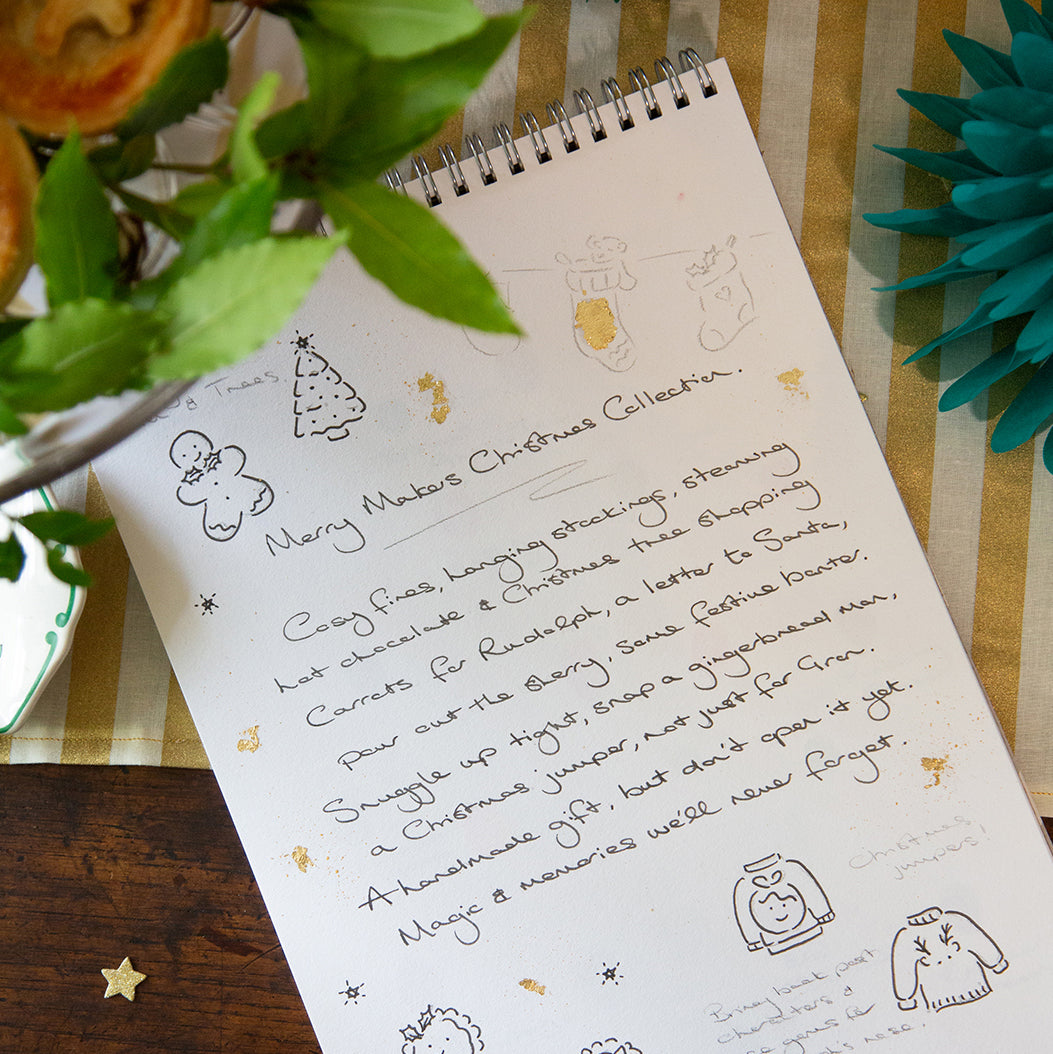 & Trees
Merry Makers Christmas Collection.
Cosy fires, hanging stockings, steaming
hot chocolate & Christmas tree shopping
Carrots for Rudolph, a letter to Santa,
pour out the sherry, some festive banter.
Snuggle up tight, snap a gingerbread man,
a Christmas jumper, not just for Gran.
A handmade gift, but don't open it yet.
Magic & memories we'll never forget.
Christmas
jumpers!
Bring back past
characters &
gems for
nose.